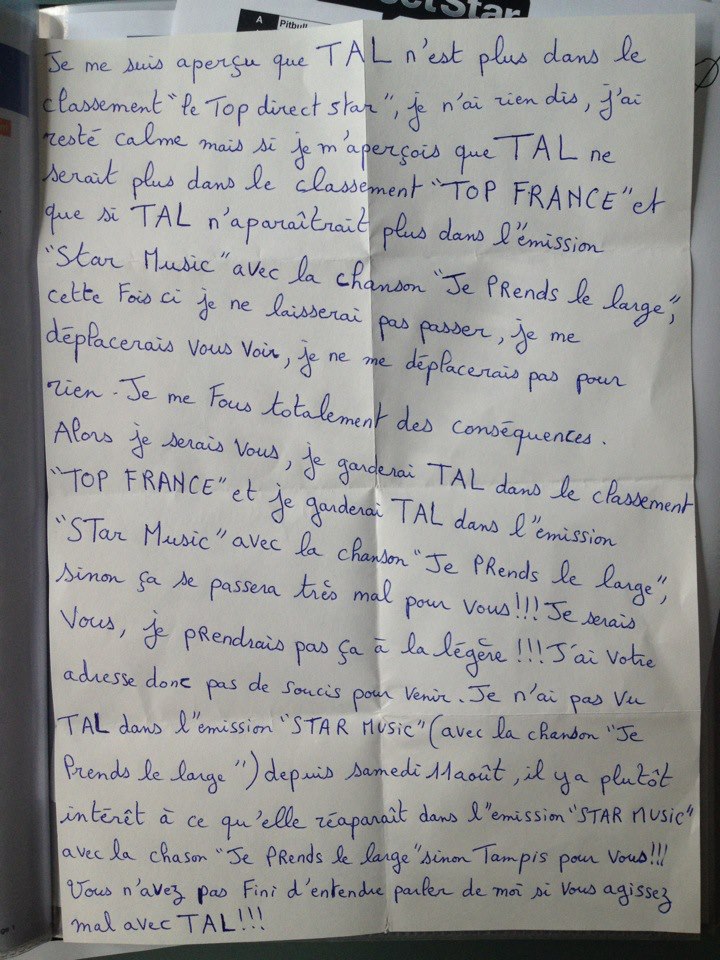 A
Pitbull
ectStar
Je me suis aperçu que TAL n'est plus dans le
classement "le Top direct star", je n'ai rien dis, j'ai
resté calme mais si je m'aperçois que TAL ne
serait plus dans le classement "TOP FRANCE" et
que si TAL n'aparaîtrait plus dans l"émission
"Star Music" avec la chanson "Je PRends le large",
cette Fois ci je ne laisserai pas passer, je me
déplacerais vous voir, je ne me déplacerais pas pour
rien. Je me Fous totalement des conséquences.
Alors je serais vous, je garderai TAL dans le classement
"TOP FRANCE" et je garderai TAL dans l"émission
"STar Music" avec la chanson "Je PRends le large",
sinon ça se passera très mal pour vous!!! Je serais
vous, je pRendrais pas ça à la légère !!! J'ai votre
adresse donc pas de soucis pour venir. Je n'ai pas vu
TAL dans l"émission "STAR MUSIC" (avec la chanson "Je
Prends le large") depuis samedi 11 août, il y a plutôt
intérêt à ce qu'elle réaparaît dans l"émission "STAR MUSIC"
avec la chason "Je PRends le large" sinon Tampis pour vous!!!
Vous n'avez pas Fini d'entendre parler de moi si vous agissez
mal avec TAL!!!